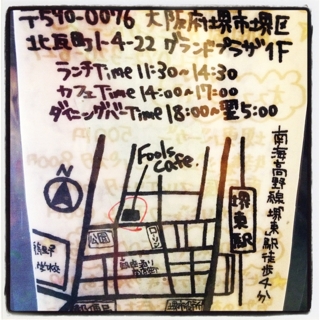 〒590-0076 大阪府堺市堺区
北瓦町1-4-22 グランドプラザ1F
ランチTime 11:30~14:30
カフェTime 14:00~17:00
ダイニングバーTime 18:00~翌5:00
Fools Cafe.
南海高野線堺東駅徒歩4分
堺東駅